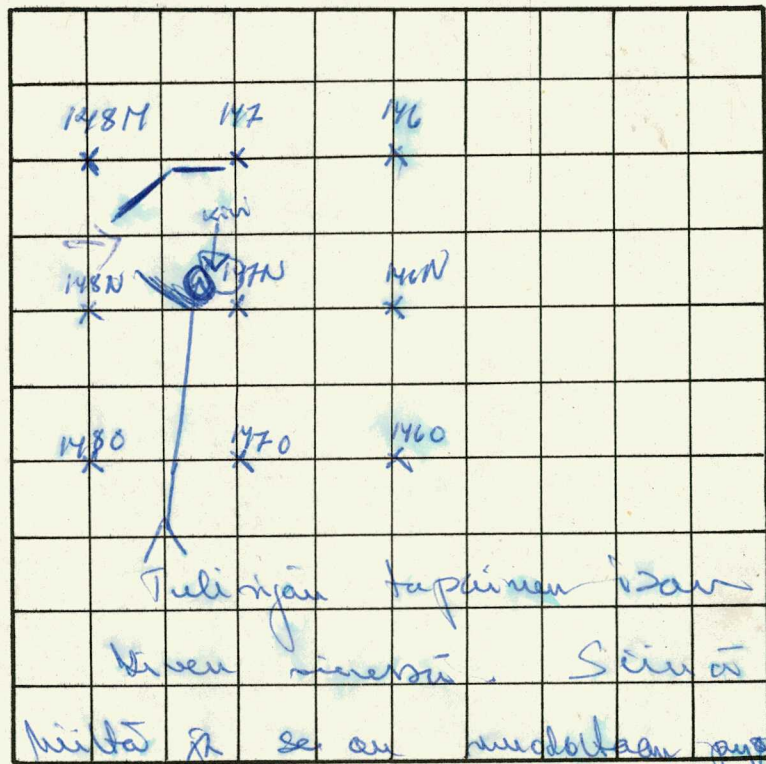 148M 147 146
kivi
148N 147N 146N
1480 1470 1460
Tulisijan tapainen ison
kiven vieressä. Siinä
hiiltä ja se on muodoltaan